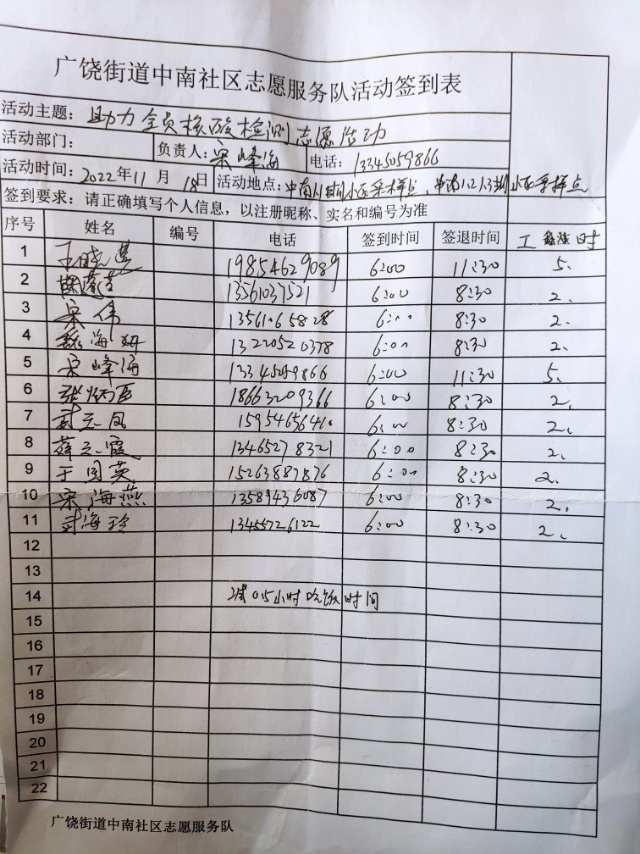 广饶街道中南社区志愿服务队活动签到表
活动主题: 助力全员核酸检测志愿活动
活动部门: 负责人: 宋峰海 电话: 13345059866
活动时间: 2022年11月18日 活动地点: 中南
签到要求: 请正确填写个人信息，以注册昵称、实名和编号为准
序号 姓名 编号 电话 签到时间 签退时间 工 时
1 王晓 19854629089 6:00 11:30 5、
2 13561037521 6:00 8:30 2、
3 宋伟 13561065828 6:00 8:30 2、
4 海妍 13220520378 6:00 8:30 2、
5 宋峰海 13345059866 6:00 11:30 5、
6 张炳臣 18663209366 6:00 8:30 2、
7 武志凤 6:00 8:30 2、
8 薛志霞 13465278321 6:00 8:30 2、
9 于国英 15263887876 6:00 8:30 2、
10 宋海燕 13589436087 6:00 8:30 2、
11 封海珍 13455726122 6:00 8:30 2、
12
13
14 减0.5小时吃饭时间
15
16
17
18
19
20
21
22
广饶街道中南社区志愿服务队